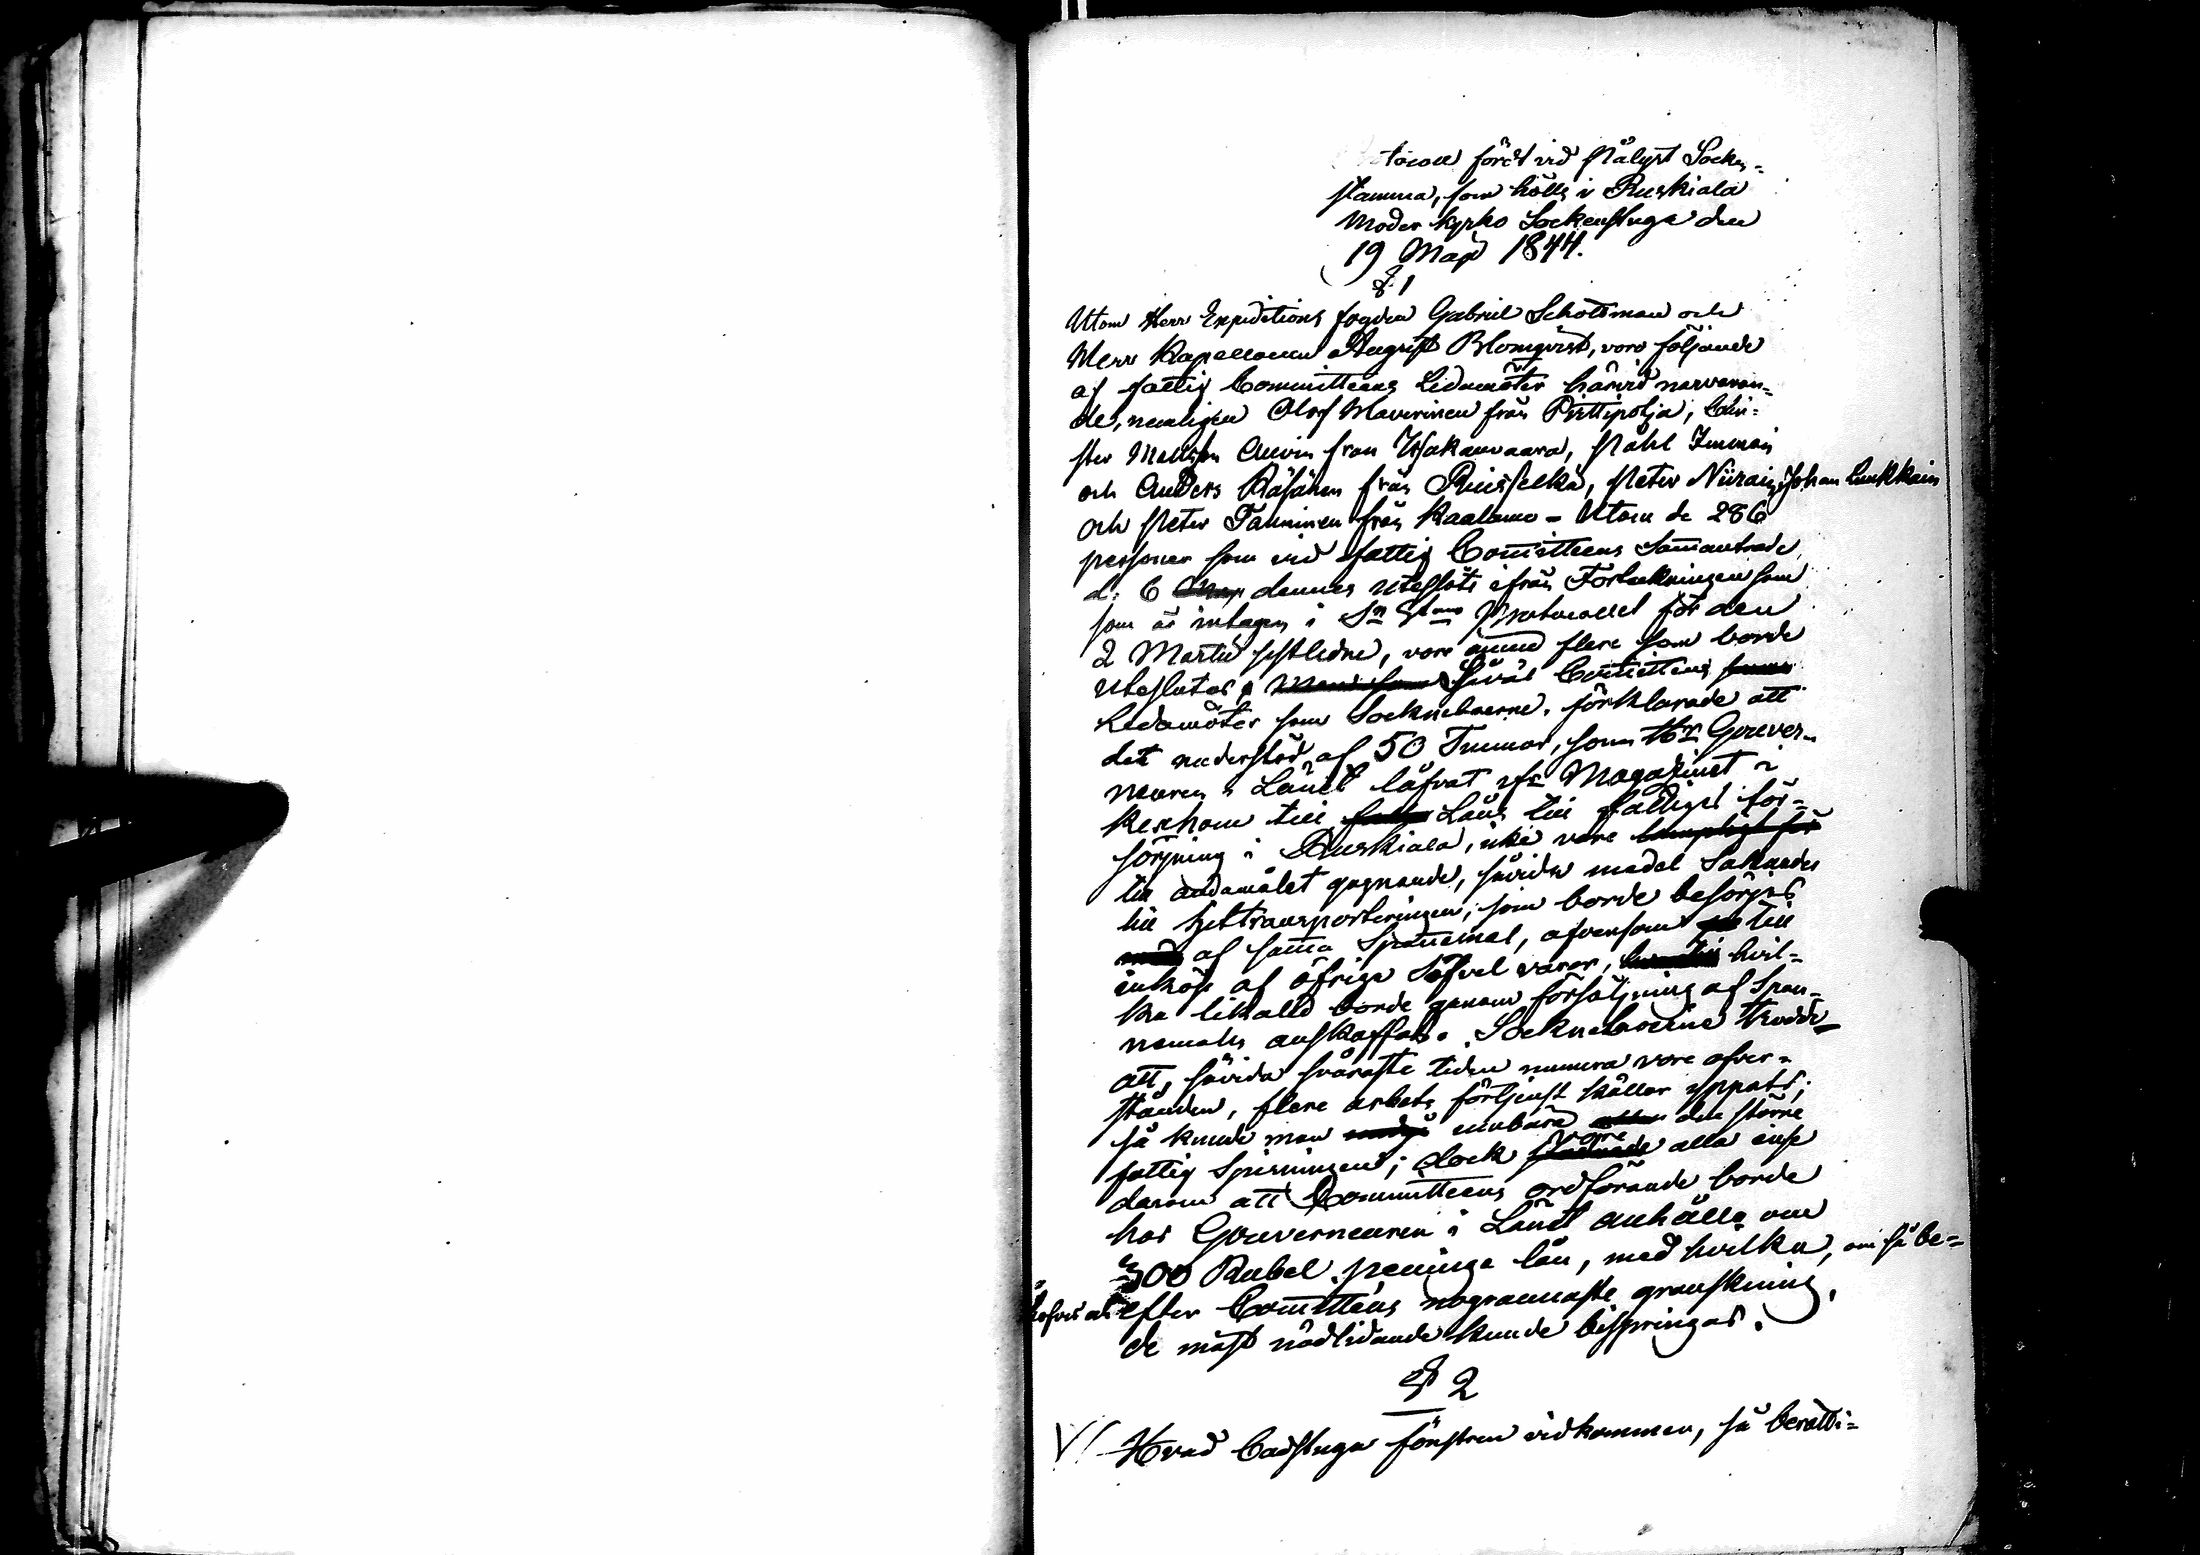 tocoll fördt vid pålyst Socken=
stamma, som hölls i Ruskiala
Moder kyrko Sockenstuga den
19 Maji 1844.
§ 1
Utom Herr Expeditions fogden Gabriel Schottman och
Herr Kapellanen August Blomqvist, voro följande
af fattig Committeens Ledamöter härvid narvaran=
de, nemligen Olof Mavirinen från Pirttipolja,
ster Mattson från Hakanvaara, Påhl Immoin
och Anders Räsänen från Ruisselka, Peter Niirain, Johan Luukkain
och Peter Tanninen från Kaalamo – Utom de 286
personer som vid fattig Comitteens Samantrade
d. 6 dennes uteslöts ifrån Forteckningen som
som är intagen i Sn Stams Protocollet för den
2 Martii sistledne, voro ännu flere som borde
uteslutas, Såväl Comitteens
Ledamöter som Sockneboerne förklarade att
det understöd af 50 Tunnor, som Hr Gouver=
neuren i Länet låfvat ifr Magazinet i
Kexholm till Lån till fattiges för=
sörjning i Ruskiala, icke vore
till ändamålet gagnande, såvida medel Saknades
till hittransporteringen, som borde besörjas
af samma Spanemål, äfvensom till
inköp af öfriga Söfvel varor, hvil=
ka likaled borde genom försäljning af Span=
nemåls anskaffas. Sockneboerne trodde
att, såvida svåraste tiden numera vore öfver=
stånden, flere arbets förtjenst källor yppats,
så kunde man umbära den större
fattig Spisningen; dock voro alla ense
derom att Committeens ordförande borde
hos Gouverneuren i Länet anhålla om
300 Rubel peninge lån, med hvilka, om så be=
höfves att efter Comitteens nogrannaste granskning,
de mäst nödlidande kunde bispringas.
§ 2
Hvad badstuga fönstren vidkommer, så berätti=